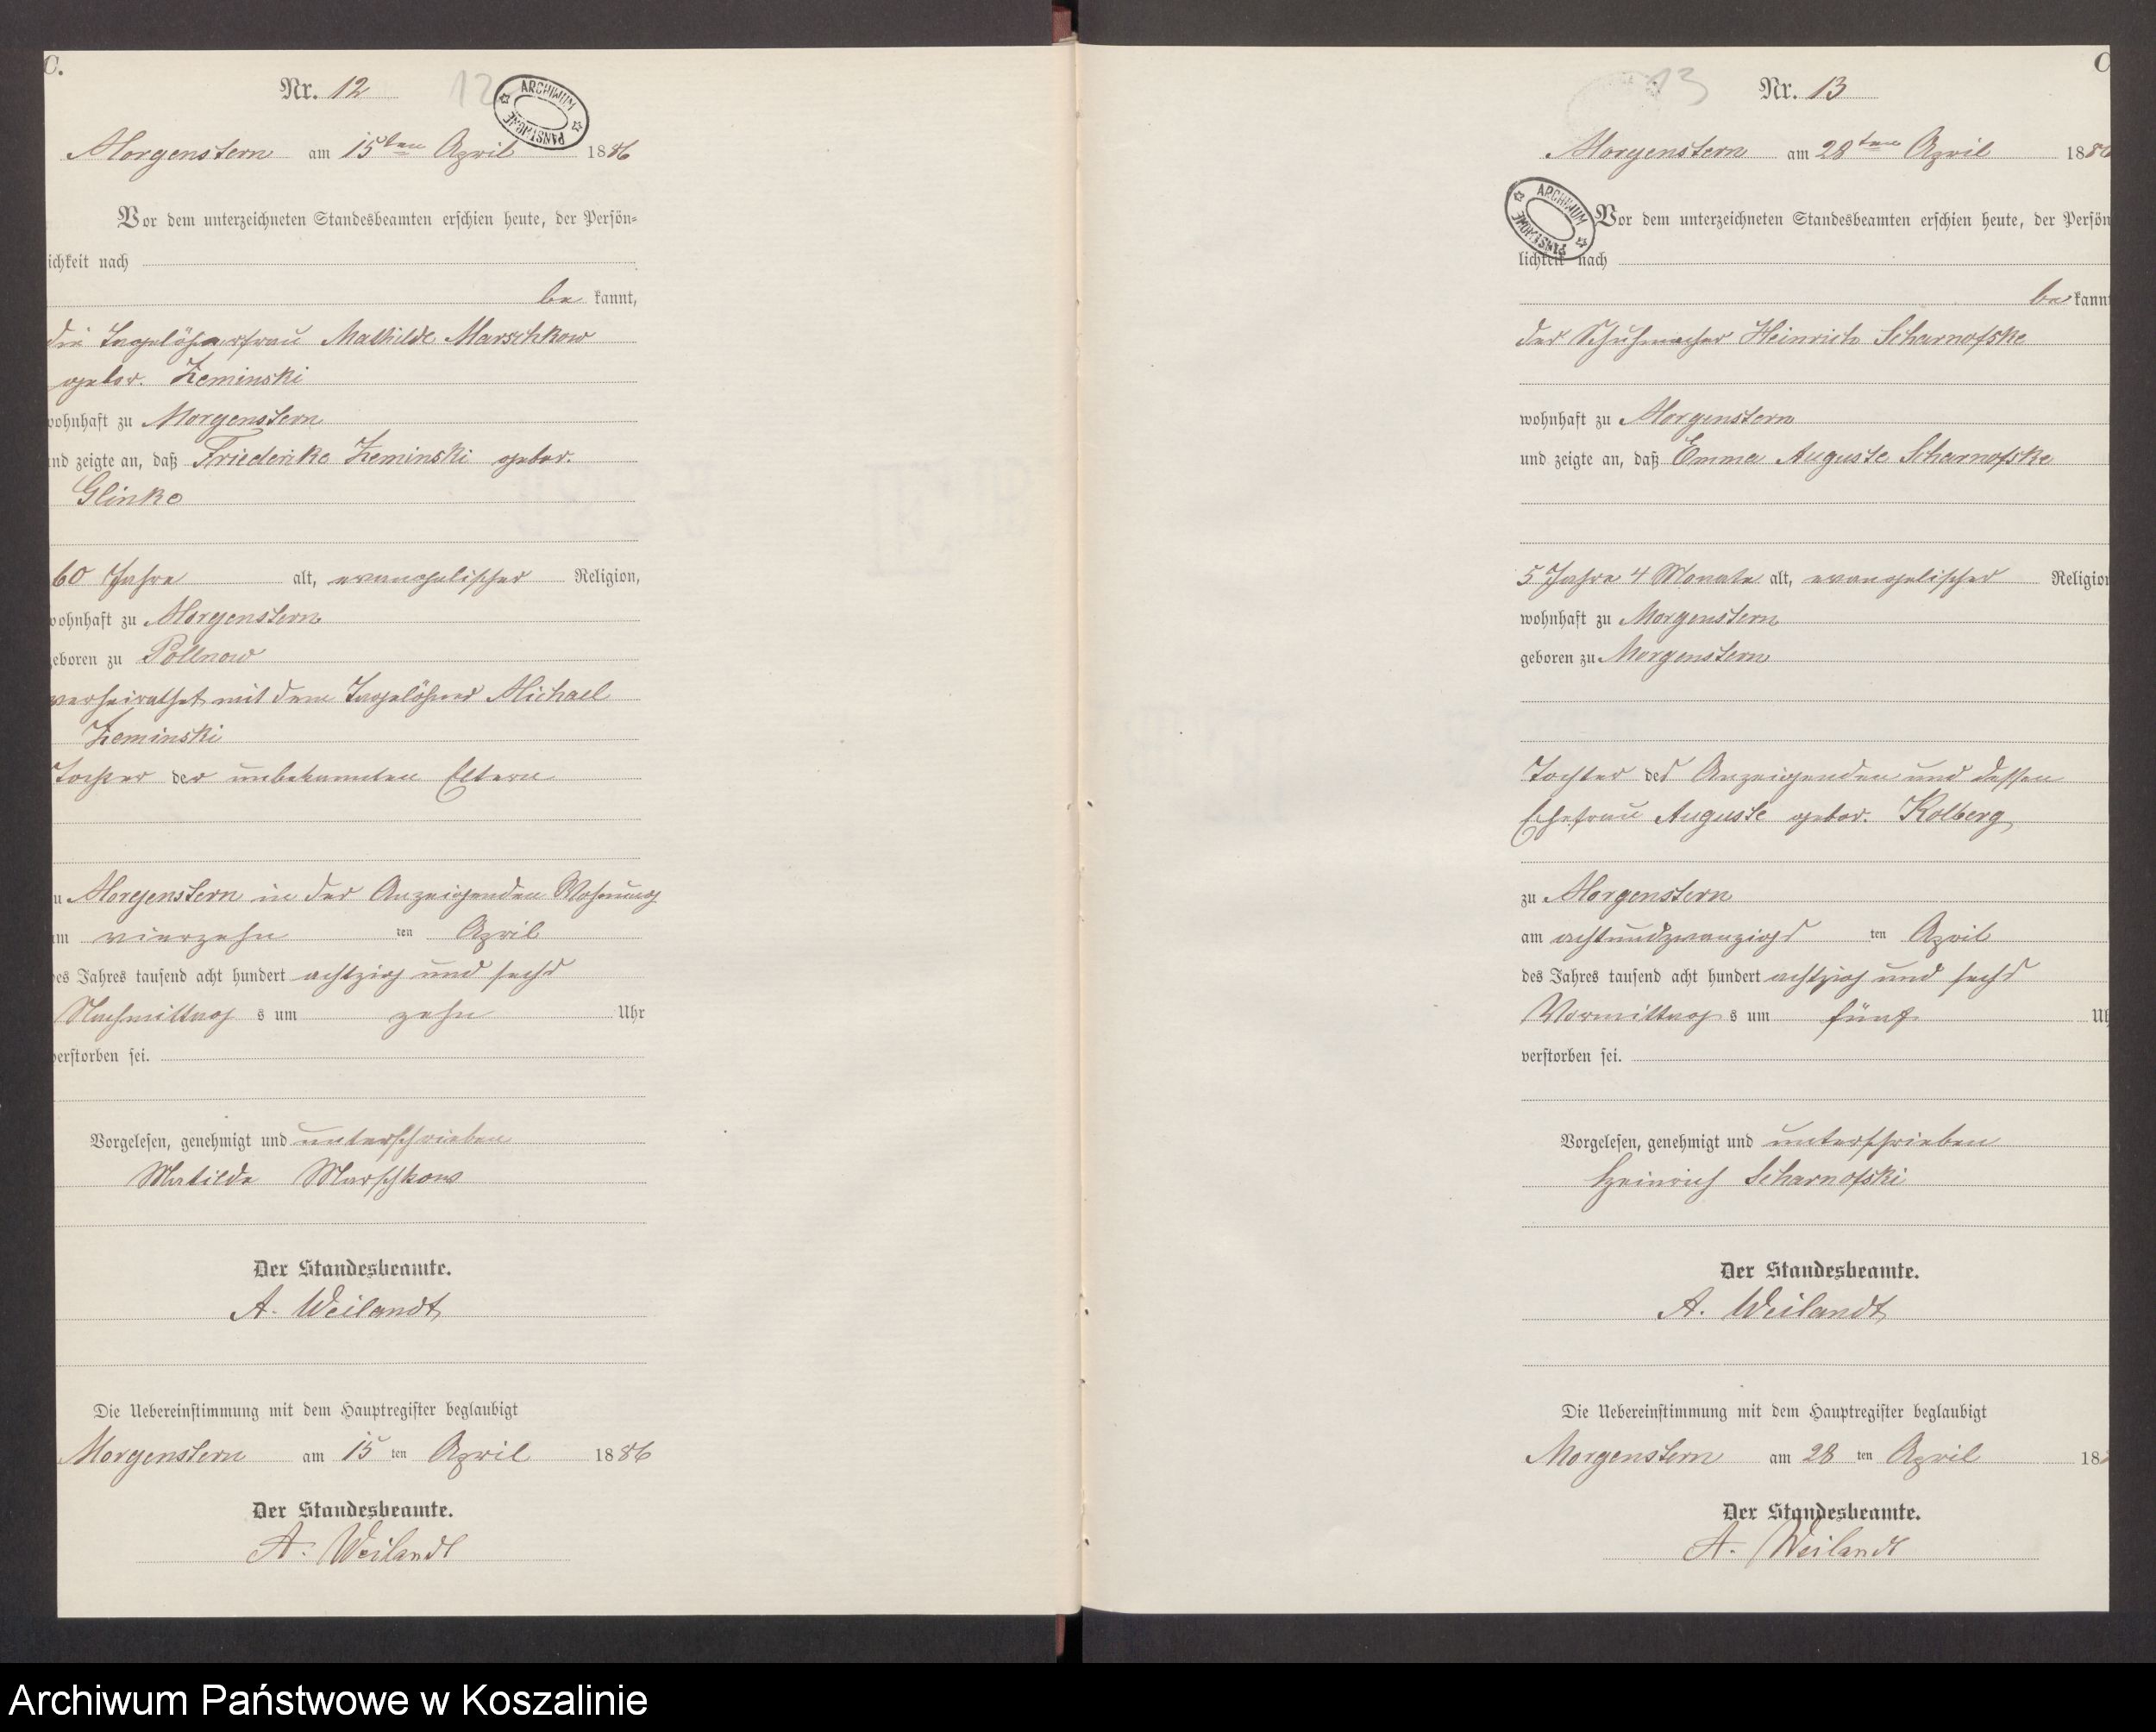 C.
Nr. 12
12
ARCHIWUM PAŃSTWOWE
Morgenstern am 15ten April 1886
Vor dem unterzeichneten Standesbeamten erschien heute, der Persön-
ichkeit nach
be kannt,
die Tagelöhnerfrau Mathilde Marschkow
gebor. Zeminski
wohnhaft zu Morgenstern
und zeigte an, daß Friederike Zeminski gebor.
Glinke
60 Jahre alt, evangelischer Religion,
wohnhaft zu Morgenstern
geboren zu Pollnow
verheirathet mit dem Tagelöhner Michael
Zeminski
Tochter der unbekannten Eltern
zu Morgenstern in der Anzeigenden Wohnung
am vierzehn ten April
des Jahres tausend acht hundert achtzig und sechs
Nachmittag s um zehn Uhr
verstorben sei.
Vorgelesen, genehmigt und unterschrieben
Matilde Marschkow
Der Standesbeamte.
A. Weilandt
Die Uebereinstimmung mit dem Hauptregister beglaubigt
Morgenstern am 15 ten April 1886
Der Standesbeamte.
A. Weilandt
C
Nr. 13
13
ARCHIWUM PAŃSTWOWE
Morgenstern am 28ten April 1886
Vor dem unterzeichneten Standesbeamten erschien heute, der Persön
lichkeit nach
be kannt
der Schuhmacher Heinrich Scharnofske
wohnhaft zu Morgenstern
und zeigte an, daß Emma Auguste Scharnofske
5 Jahre 4 Monate alt, evangelischer Religion
wohnhaft zu Morgenstern
geboren zu Morgenstern
Tochter des Anzeigenden und dessen
Ehefrau Auguste gebor. Kolberg
zu Morgenstern
am achtundzwanzigs ten April
des Jahres tausend acht hundert achtzig und sechs
Vormittag s um fünf Uh
verstorben sei.
Vorgelesen, genehmigt und unterschrieben
Heinrich Scharnofski
Der Standesbeamte.
A. Weilandt
Die Uebereinstimmung mit dem Hauptregister beglaubigt
Morgenstern am 28 ten April 18
Der Standesbeamte.
A. Weilandt
Archiwum Państwowe w Koszalinie